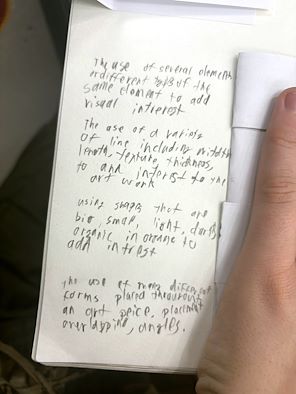 The use of several elements
or different types of the
same element to add
visual interest
The use of a variety
of line including width
length, texture, thickness,
to and interest to the
art work
using shapes that are
big, small, light, dark,
organic in orange to
add intrest
The use of many different
forms placed throughout
an art peice, placement
overlapping, angles.